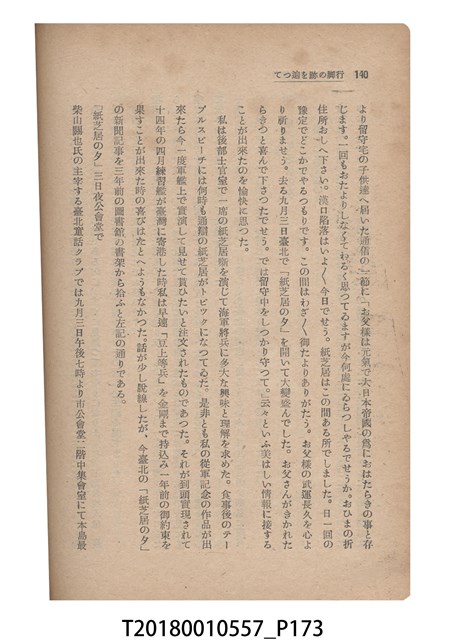 140 行脚の跡を追つて
より留守宅の子供達へ届いた通信の一節に「お父樣は元氣で大日本帝國の爲におはたらきの事と存
じます。一回もおたよりしなくてわるく思つてゐますが今何處にゐらつしやるでせうか。おひまの折
住所おしへ下さい。漢口陷落はいよ〱今日でせう。紙芝居はこの間ある所でしました。日一回の
豫定でどこかでやるつもりです。この間はわざ〱御たよりありがたう。お父樣の武運長久を心よ
り祈りませう。去る九月三日臺北で「紙芝居の夕」を開いて大變盛んでした。お父さんがきかれた
らきつと喜んで下さつたでせう。では留守中をしつかり守つて。」云々といふ美はしい情報に接する
ことが出來たのを愉快に思つた。
私は後部士官室で一席の紙芝居噺を演じて海軍將兵に多大な興味と理解を求めた。食事後のテー
ブルスピーチには何時も通辯の紙芝居がトピツクになつてゐた。是非とも私の從軍記念の作品が出
來たら今一度軍艦上で實演して見せて貰ひたいと注文されたものであつた。それが到頭實現されて
十四年の四月練習艦が臺灣に寄港した時私は早速「豆上等兵」を金剛まで持込み一年前の御約束を
果すことが出來た時の喜びはたとへようもなかつた。話が少し脫線したが、今臺北の「紙芝居の夕」
の新聞記事を三年前の圖書館の書架から拾ふと左記の通りである。
「紙芝居の夕」三日夜公會堂で
柴山關也氏の主宰する臺北童話クラブでは九月三日午後七時より市公會堂二階中集會室にて本島最
T20180010557_P173